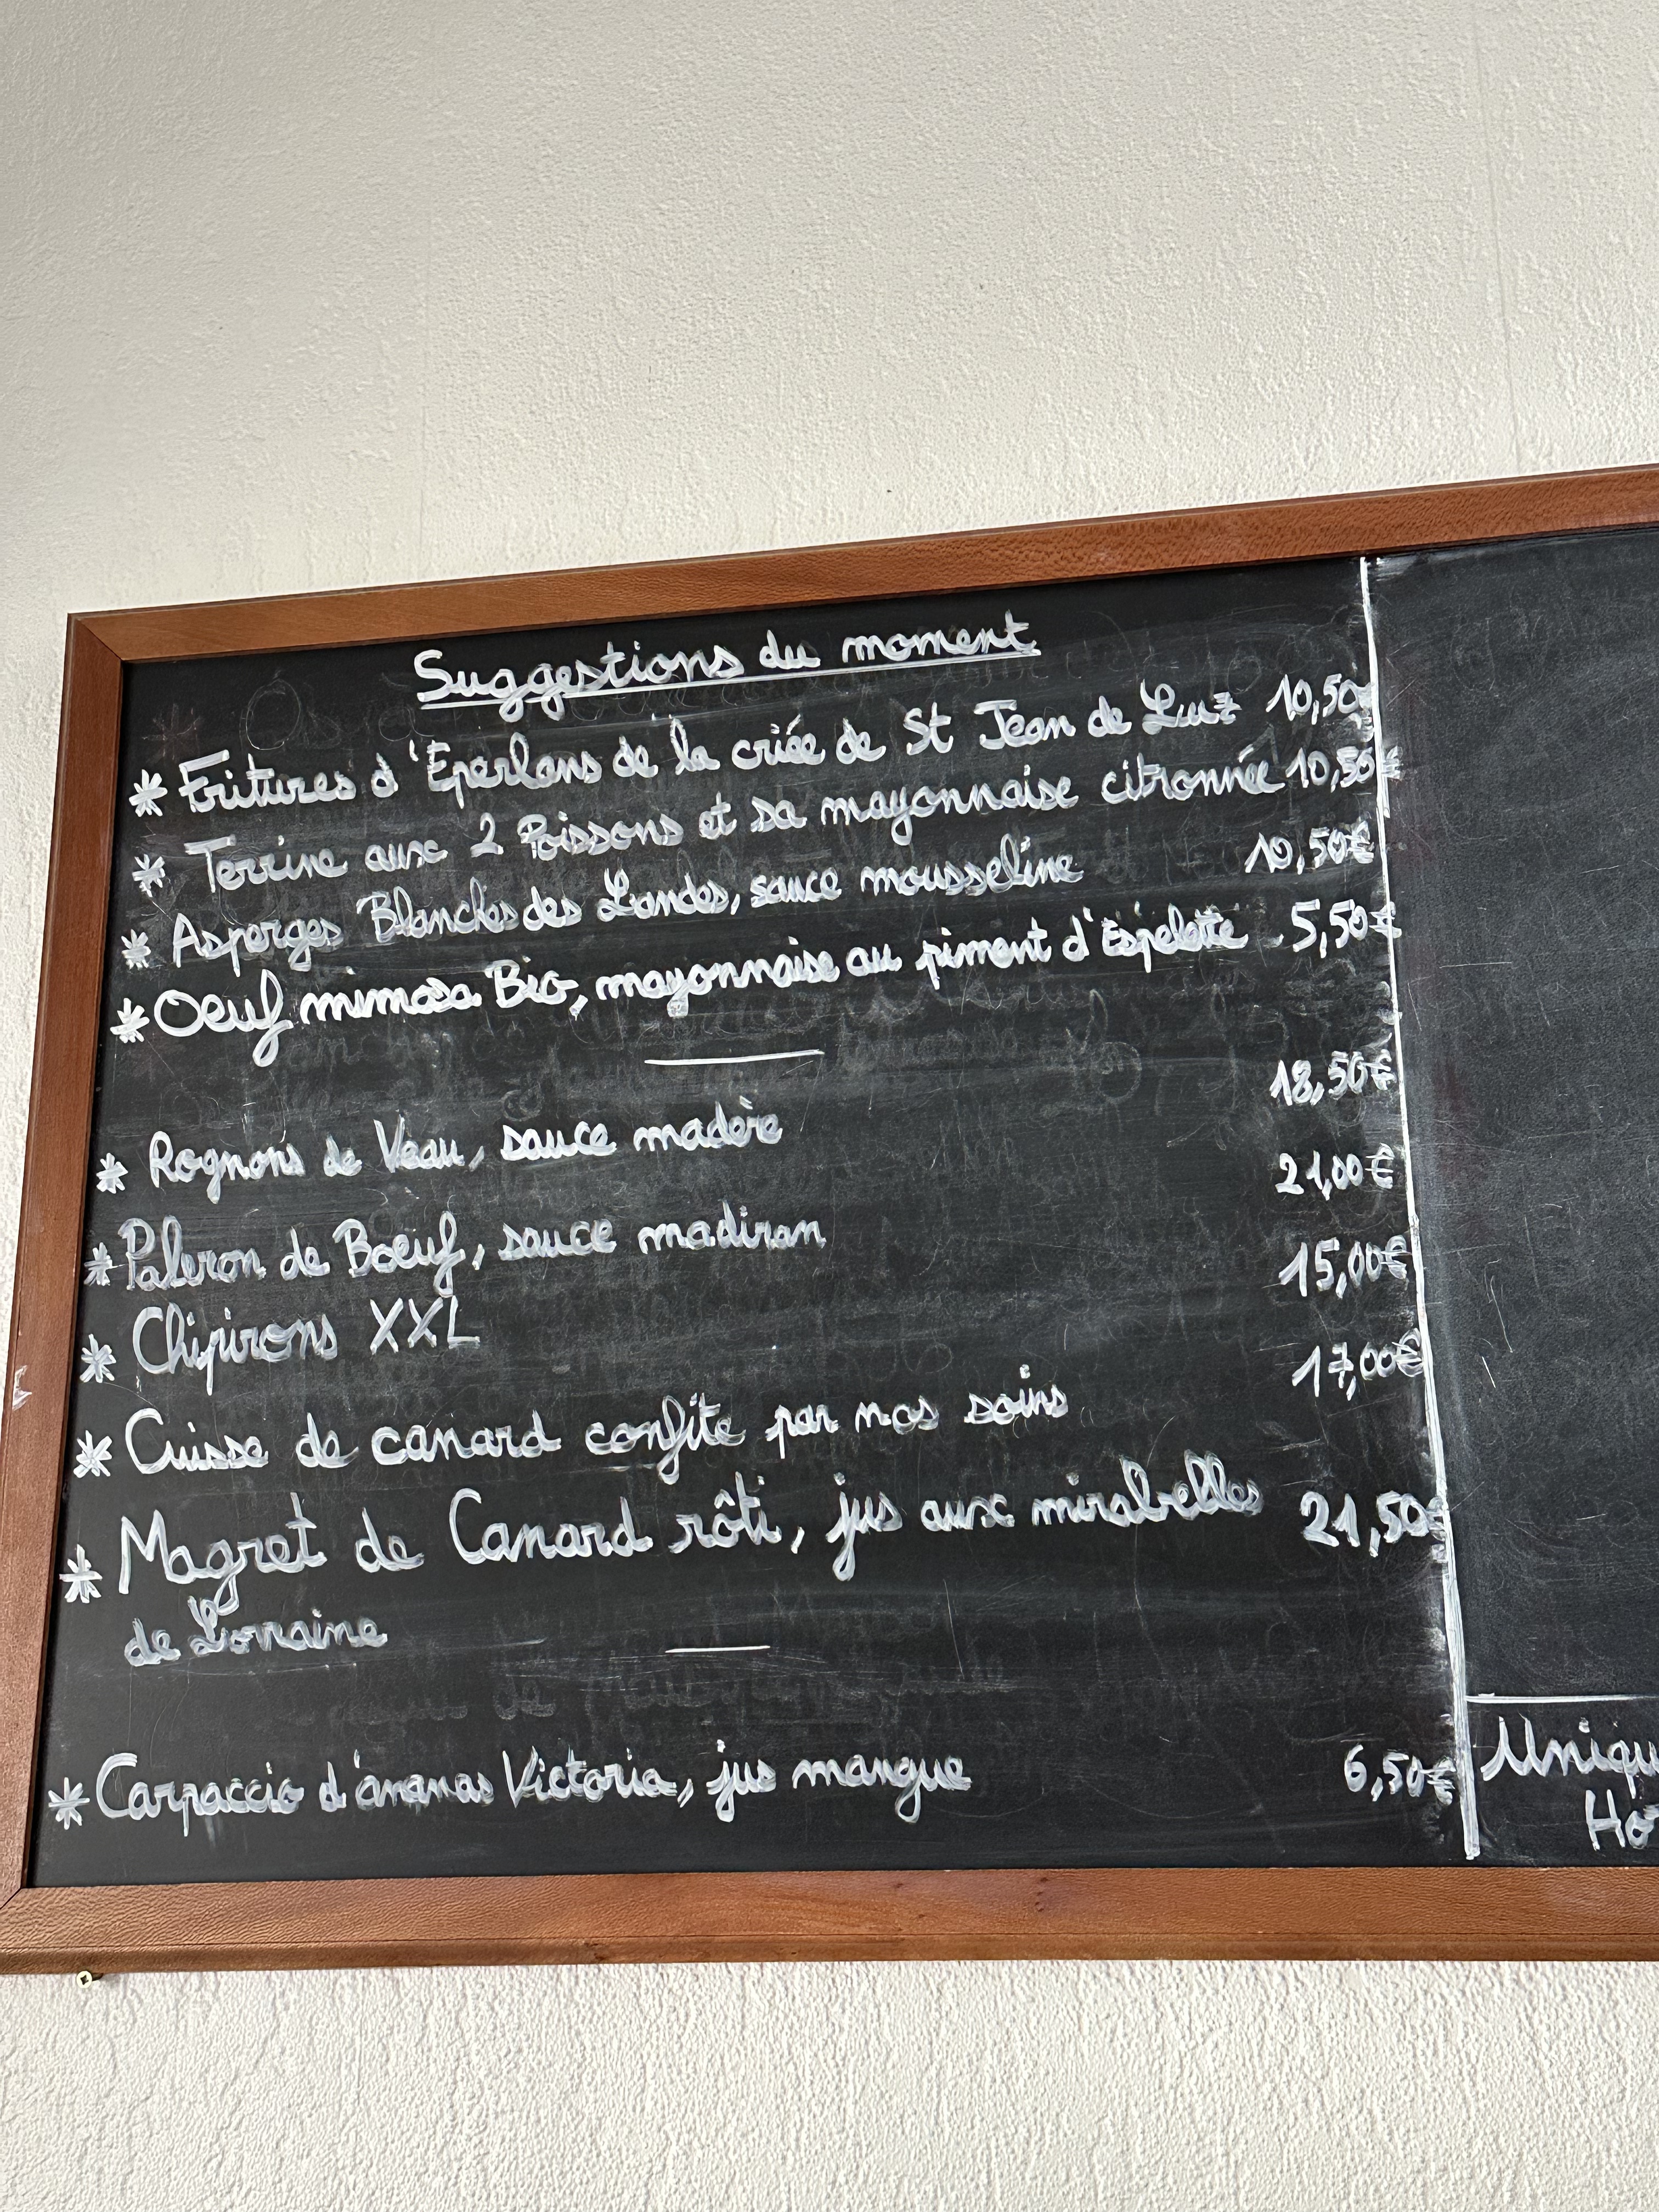 Suggestions du moment
* Fritures d'Eperlans de la criée de St Jean de Luz 10,50€
* Terrine aux 2 Poissons et sa mayonnaise citronnée 10,50€
* Asperges Blanches des Landes, sauce mousseline 10,50€
* Oeuf mimosa Bio, mayonnaise au piment d'Espelette 5,50€
* Rognons de Veau, sauce madère 18,50€
* Paleron de Boeuf, sauce madiran 21,00€
* Chipirons XXL 15,00€
* Cuisse de canard confite par nos soins 17,00€
* Magret de Canard rôti, jus aux mirabelles 21,50€
de Lorraine
* Carpaccio d'ananas Victoria, jus mangue 6,50€